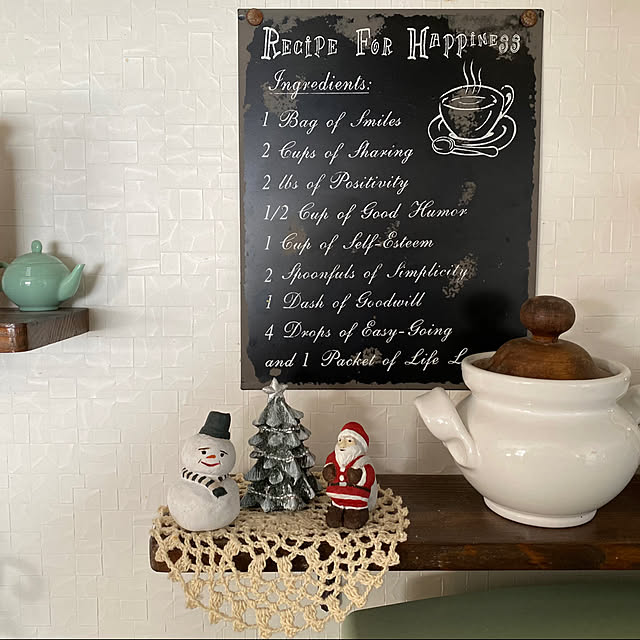 Recipe For Happiness
Ingredients:
1 Bag of Smiles
2 Cups of Sharing
2 lbs of Positivity
1/2 Cup of Good Humor
1 Cup of Self-Esteem
2 Spoonfuls of Simplicity
1 Dash of Goodwill
4 Drops of Easy-Going
and 1 Packet of Life L